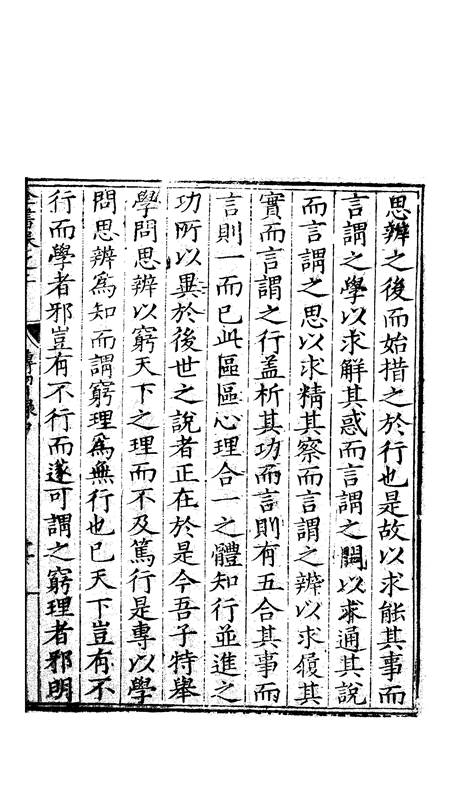 思辨之後而始措之於行也是故以求能其事而
言謂之學以求解其惑而言謂之問以求通其說
而言謂之思以求精其察而言謂之辨以求履其
實而言謂之行蓋析其功而言則有五合其事而
言則一而已此區區心理合一之體知行並進之
功所以異於後世之說者正在於是今吾子特舉
學問思辨以窮天下之理而不及篤行是專以學
問思辨爲知而謂窮理爲無行也已天下豈有不
行而學者邪豈有不行而遂可謂之窮理者邪明